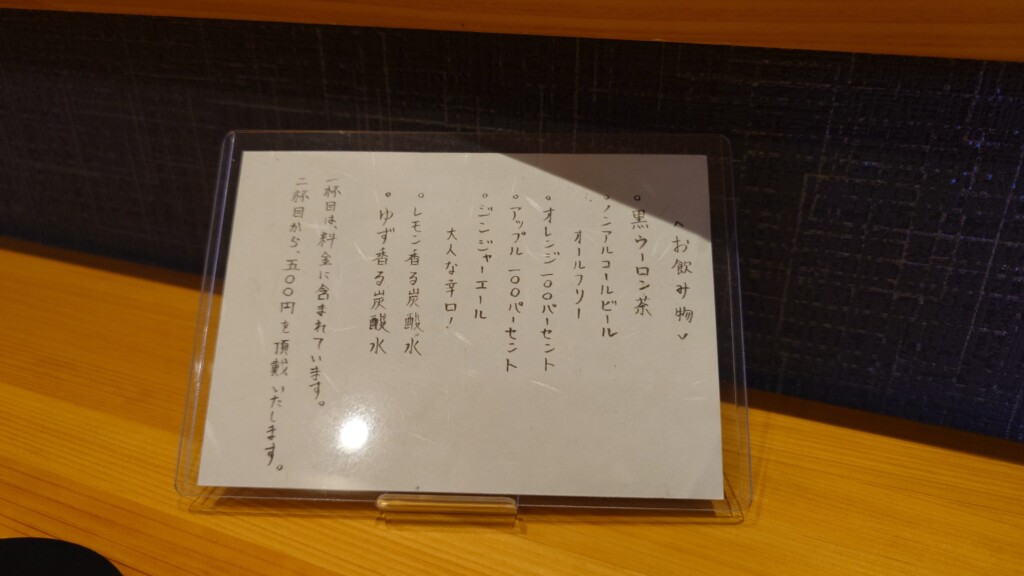 〈お飲み物〉
。黒ウーロン茶
。ノンアルコールビール
オールフリー
。オレンジ一〇〇パーセント
。アップル一〇〇パーセント
。ジンジャーエール
大人な辛口!
。レモン香る炭酸水
。ゆず香る炭酸水
一杯目は、料金に含まれています。
二杯目から、五〇〇円を頂戴いたします。